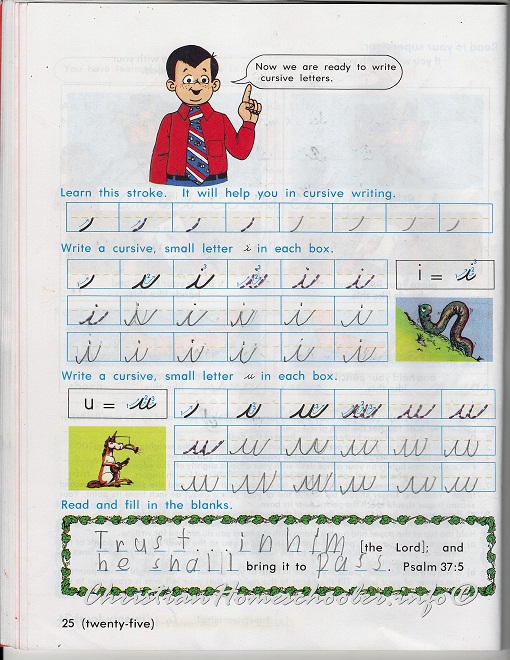 Now we are ready to write
cursive letters.
Learn this stroke. It will help you in cursive writing.
Write a cursive, small letter i in each box.
i i i i i
i = i
i i i i i i
i i i i i i
Write a cursive, small letter u in each box.
u = u
u u u u
u u u u u u
u u u u u u
Read and fill in the blanks.
Trust...in him [the Lord]; and
he shall bring it to pass. Psalm 37:5
ChristianHomeschooler.info©
25 (twenty-five)